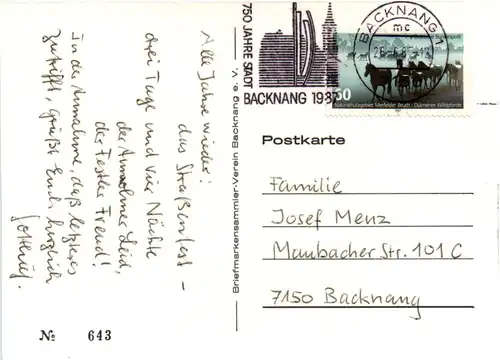 Alle Jahre wieder:
das Straßenfest –
drei Tage und vier Nächte
der Anwohner Leid,
der Festler Freud!
In der Annahme, daß letzteres
zutrifft, grüßt Euch herzlich
№ 643
Briefmarkensammler-Verein Backnang e. V.
750 JAHRE STADT
BACKNANG 1987
BACKNANG 1
mc
Naturschutzgebiet Merfelder Bruch · Dülmener Wildpferde
Postkarte
Familie
Josef Menz
Maubacher Str. 101 C
7150 Backnang